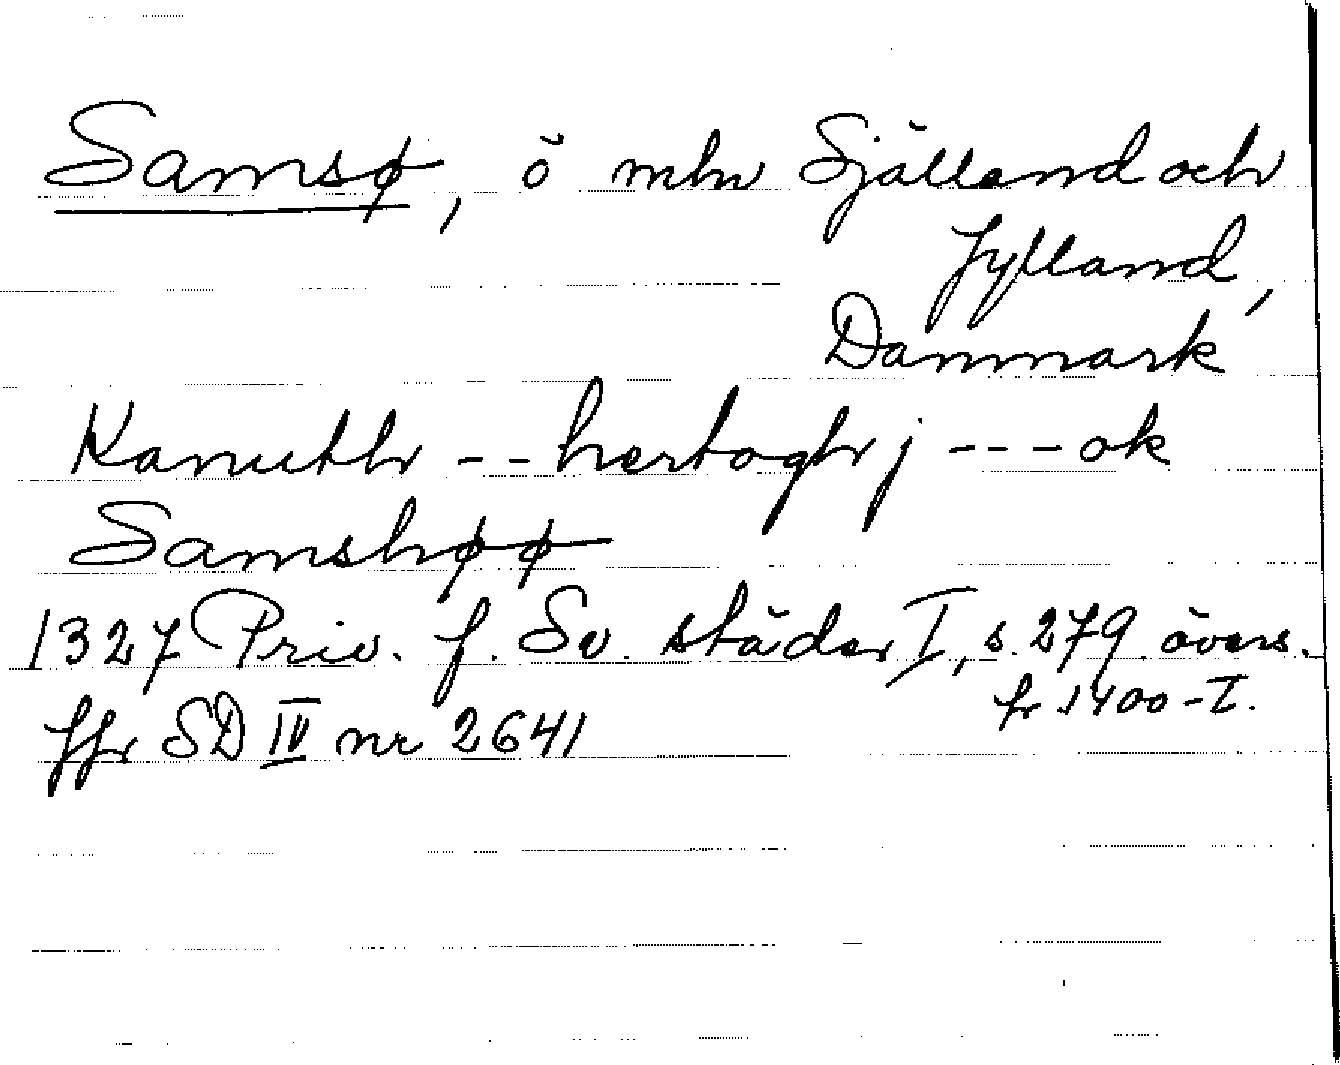 Samsø, ö mln Själland och
Jylland,
Danmark
Kanuth -- hertogh j --- ok
Samshøø
1327 Priv. f. Sv. städer I, s. 279. övers.
fr. 1400-T.
Jfr SD IV nr 2641